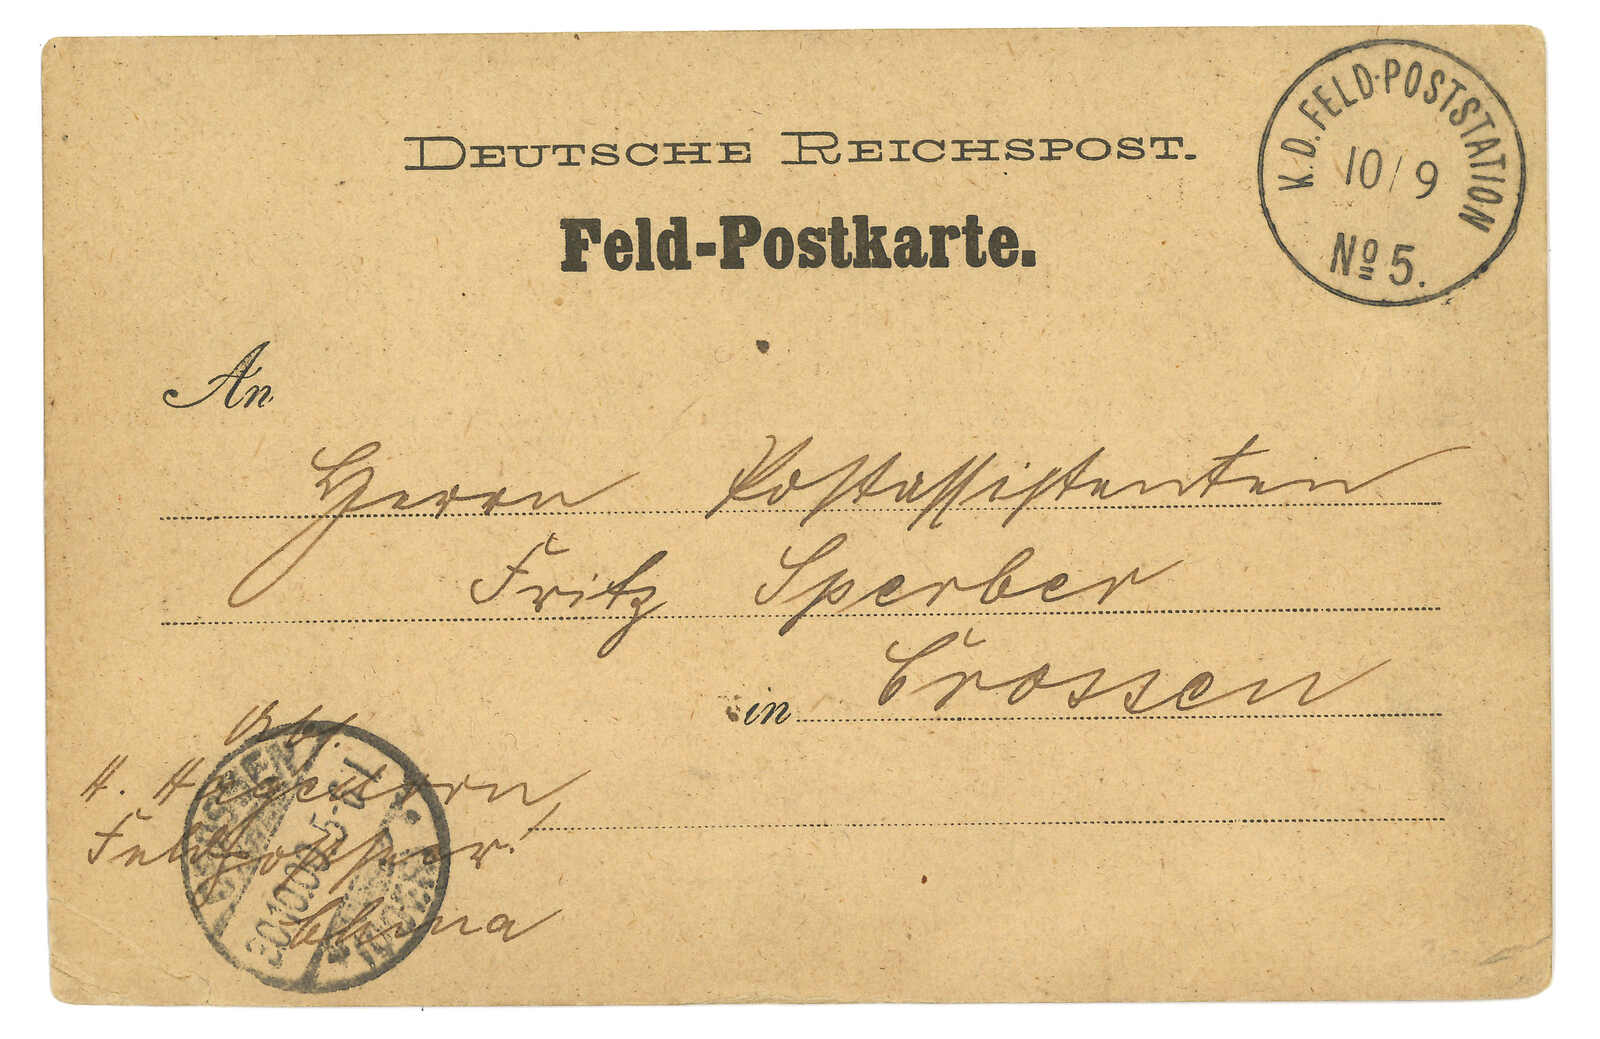 DEUTSCHE REICHSPOST.
Feld-Postkarte.
K.D. FELD-POSTSTATION
10/9
No 5.
An
Herrn Postassistenten
Fritz Sperber
in Crossen
Abs.
H. Hagedorn,
China
CROSSEN
30.10.00